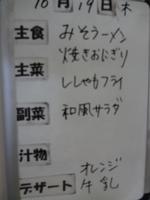 10月19日 木
主食 みそラーメン
焼きおにぎり
主菜 ししゃもフライ
副菜 和風サラダ
汁物
デザート オレンジ
牛乳